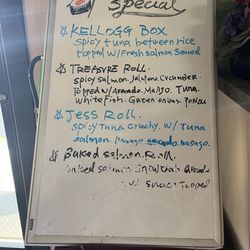 Special
KELLOGG BOX
Spicy tuna between rice
topped w/ Fresh salmon Seared
TREASURE ROLL.
spicy salmon. Jalapeno Cucumber.
Topped w/ Avocado. Mango. Tuna.
white Fish. Green onions. Ponzu
Jess Roll.
Spicy Tuna crunchy. w/ Tuna
Salmon. Mango avocado. masago.
Baked salmon Roll.
baked salmon snow crab avocado
w/ sauce Topped